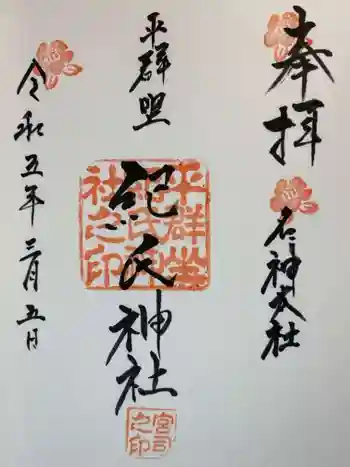 奉拝
名神大社
平群
紀氏神社
令和五年三月五日
平群坐
紀氏神
社之印
宮司
之印